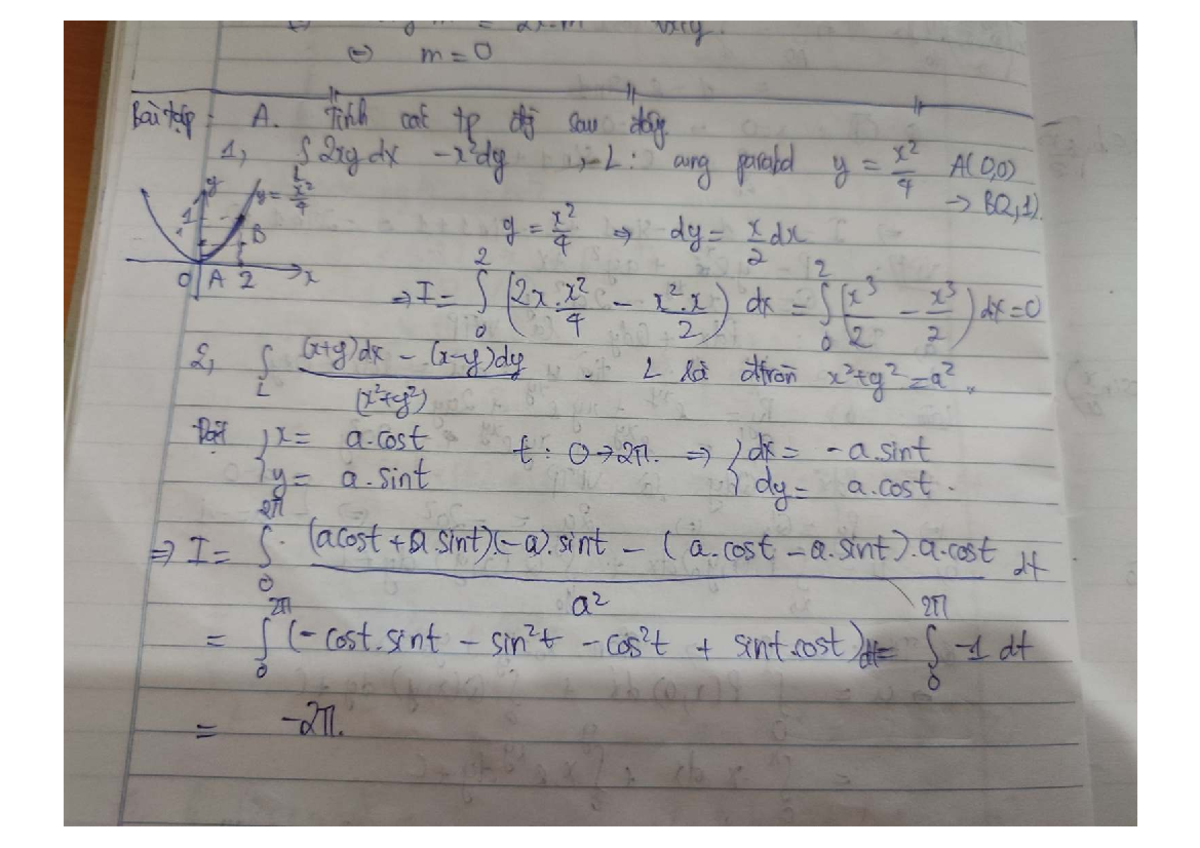 m = 2x-m
⇔ m = 0
Bài tập: A. Tính các tp đg sau đây
1, ∫L 2xy dx - x²dy , L: cung parabol y = x²/4 A(0,0)
→ B(2,1).
y y = x²/4
1 B
O A 2 x
y = x²/4 ⇒ dy = x/2 dx
⇒ I = ∫₀² (2x.x²/4 - x².x/2) dx = ∫₀² (x³/2 - x³/2) dx = 0
2, ∫L ((x+y)dx - (x-y)dy)/(x²+y²) . L là đtròn x²+y² = a².
Đặt { x = a.cost t: 0→2π. ⇒ { dx = -a.sint
y = a.sint dy = a.cost.
⇒ I = ∫₀^2π ((acost + a.sint)(-a).sint - (a.cost - a.sint).a.cost)/a² dt
= ∫₀^2π (-cost.sint - sin²t - cos²t + sint.cost)dt = ∫₀^2π -1 dt
= -2π.